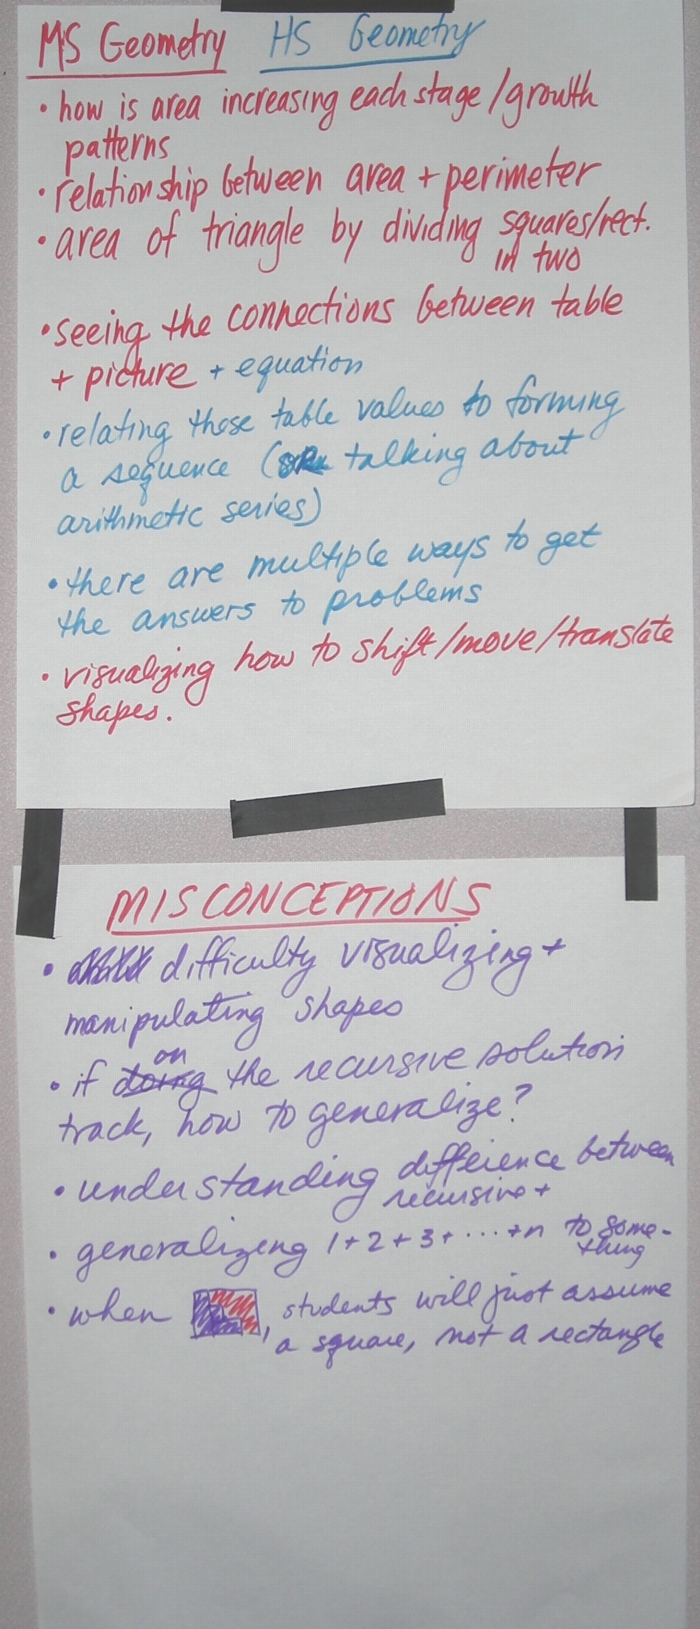 MS Geometry HS Geometry
• how is area increasing each stage/growth
patterns
• relationship between area + perimeter
• area of triangle by dividing squares/rect.
in two
• seeing the connections between table
+ picture + equation
• relating those table values to forming
a sequence ( talking about
arithmetic series)
• there are multiple ways to get
the answers to problems
• visualizing how to shift/move/translate
shapes.
MISCONCEPTIONS
• difficulty visualizing +
manipulating shapes
on
• if doing the recursive solution
track, how to generalize?
• understanding difference between
recursive +
• generalizing 1+2+3+···+n to some-
thing
• when , students will just assume
a square, not a rectangle